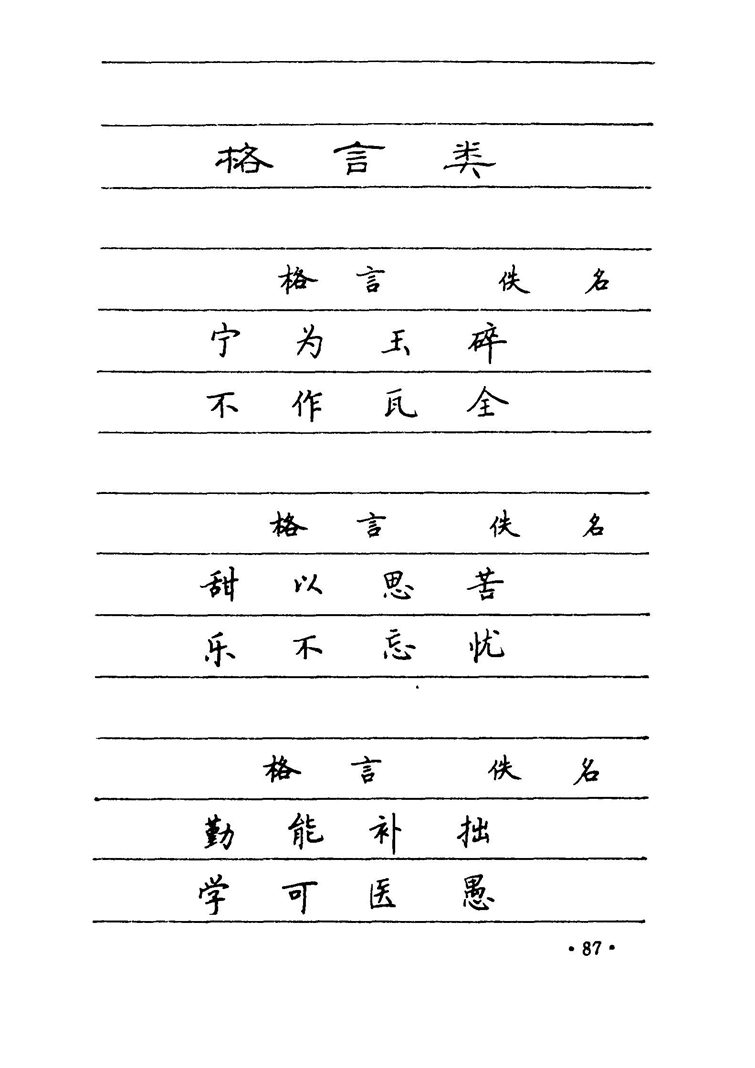 格言类
格言 佚名
宁为玉碎
不作瓦全
格言 佚名
甜以思苦
乐不忘忧
格言 佚名
勤能补拙
学可医愚
·87·